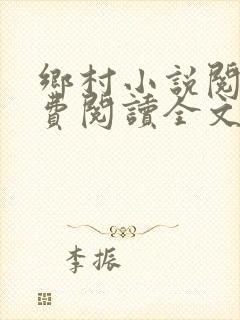 鄉村小說閱
費閱讀全文
李振